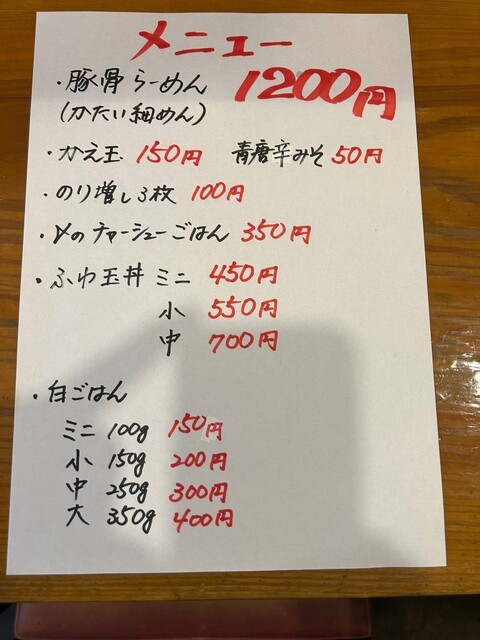 メニュー
・豚骨らーめん 1200円
(かたい細めん)
・かえ玉 150円 青唐辛みそ 50円
・のり増し3枚 100円
・〆のチャーシューごはん 350円
・ふわ玉丼 ミニ 450円
小 550円
中 700円
・白ごはん
ミニ 100g 150円
小 150g 200円
中 250g 300円
大 350g 400円